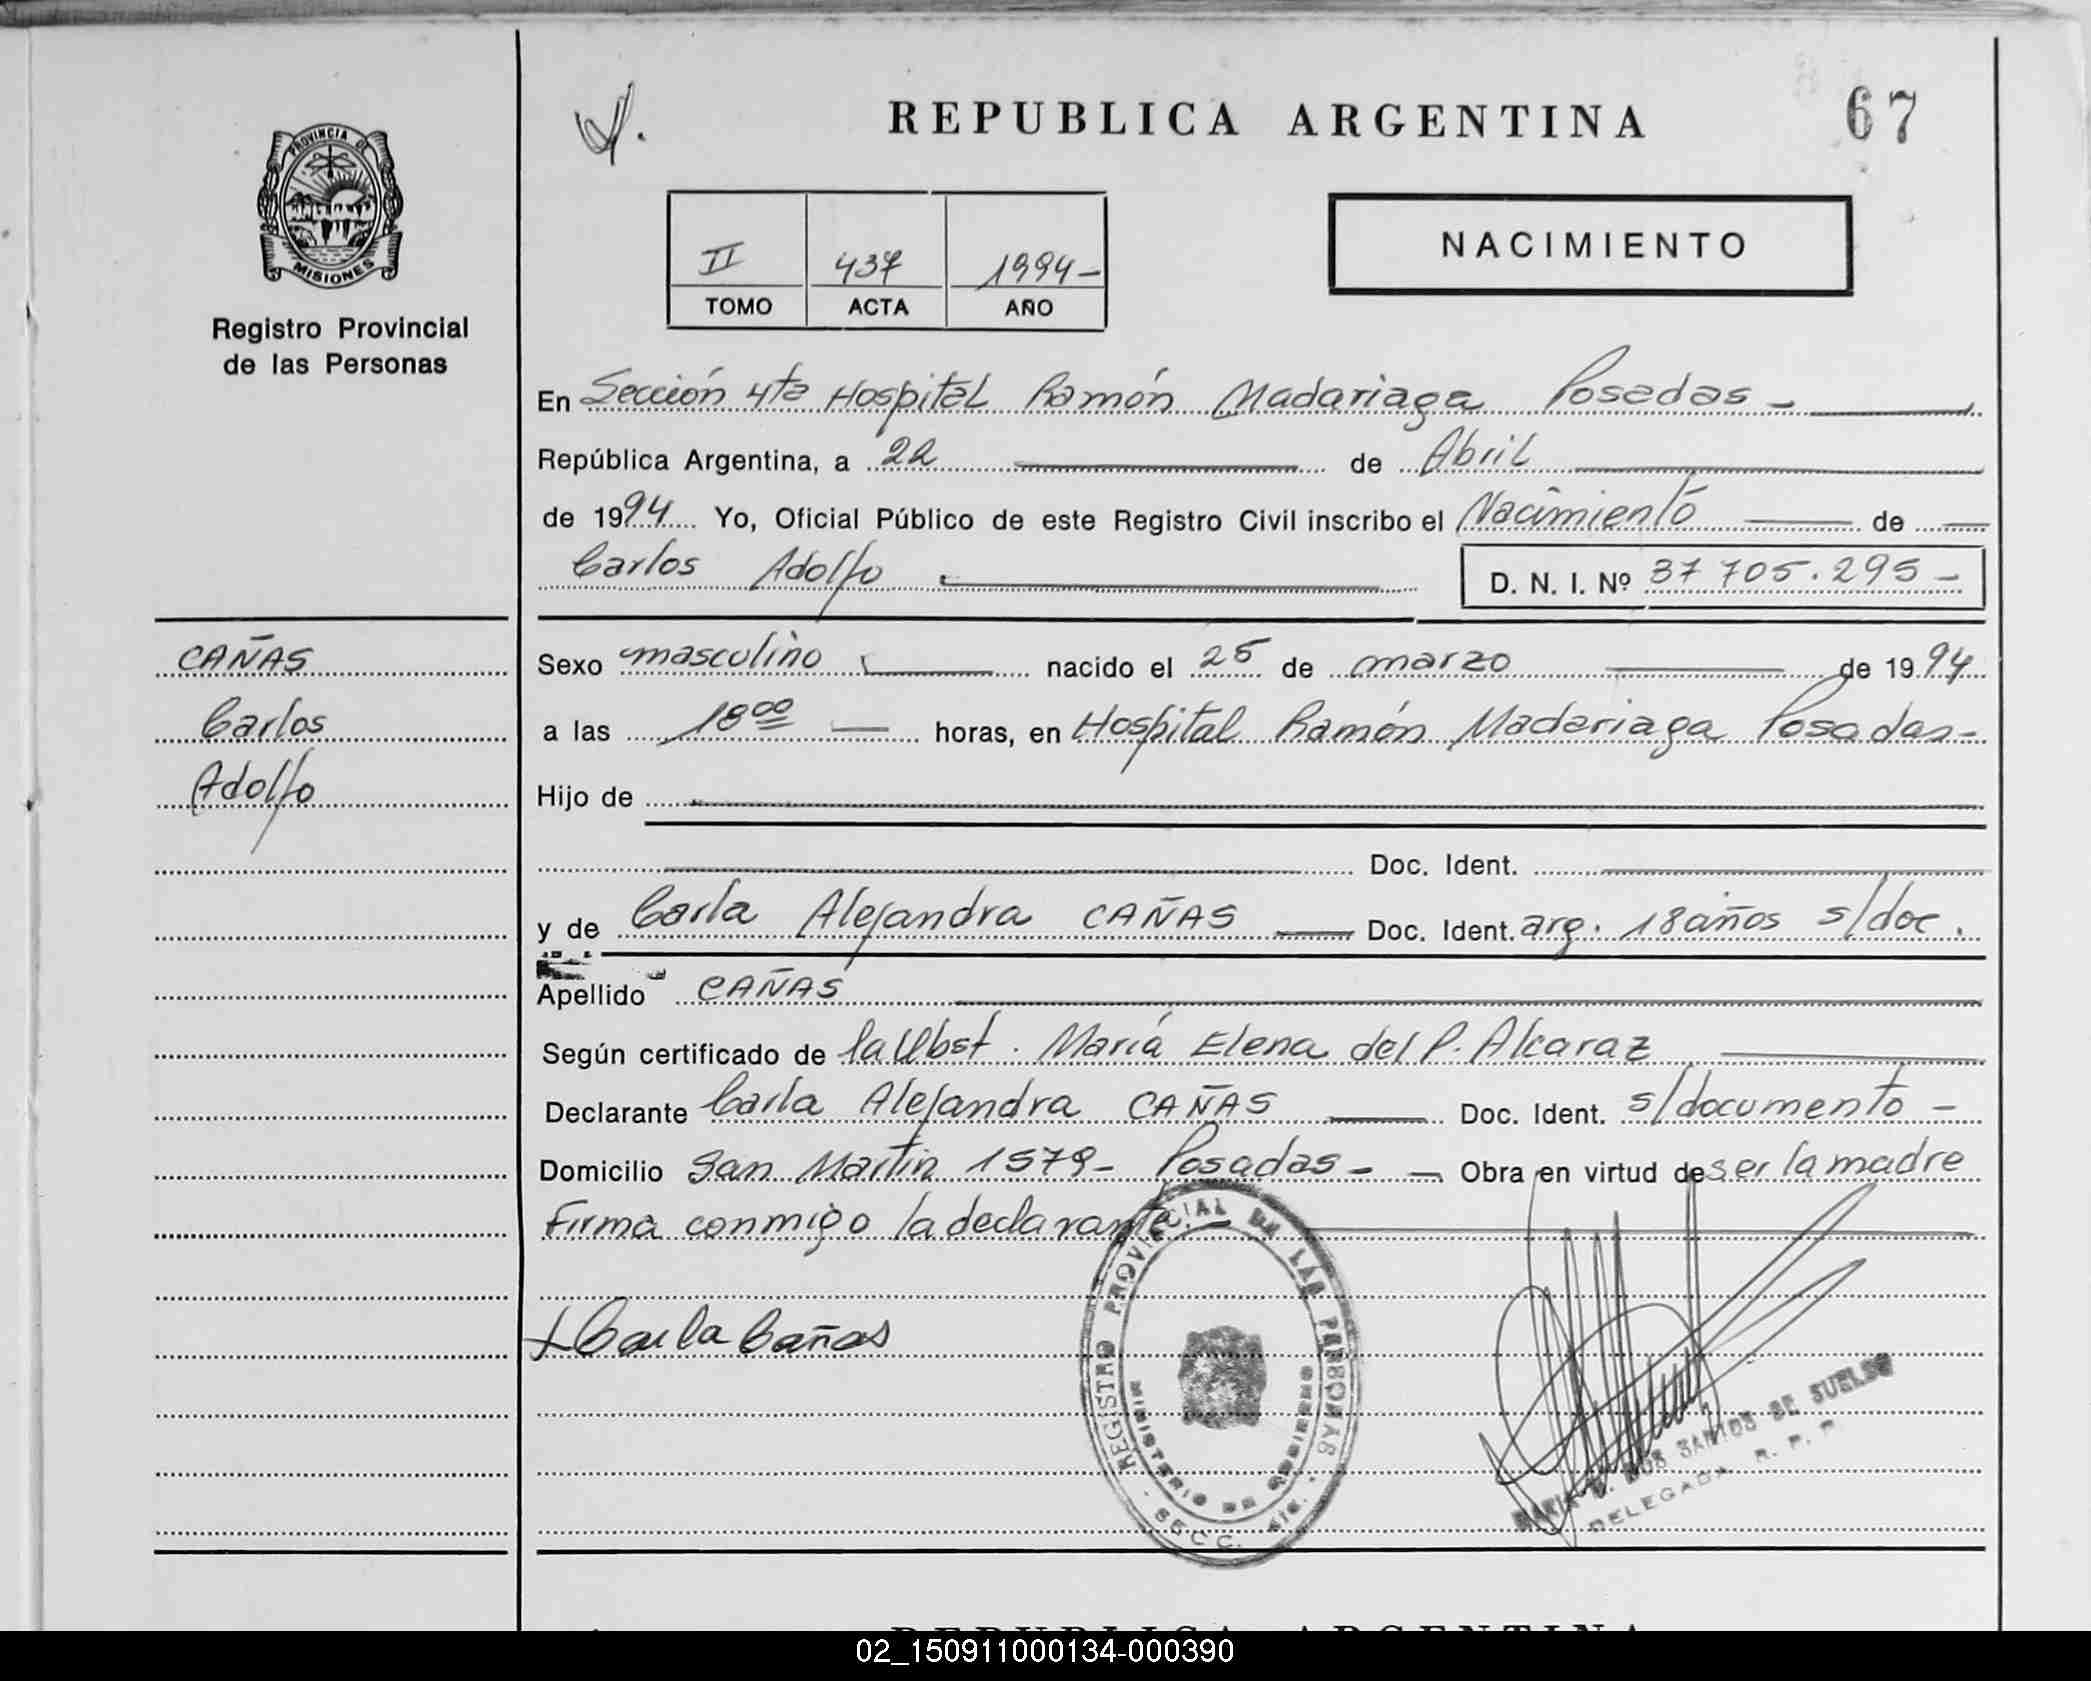 REPUBLICA ARGENTINA
67
PROVINCIA DE
MISIONES
Registro Provincial
de las Personas
II 437 1994-
TOMO ACTA AÑO
NACIMIENTO
En Sección 4ta Hospital Ramón Madariaga Posadas -
República Argentina, a 22 de Abril
de 1994 Yo, Oficial Público de este Registro Civil inscribo el Nacimiento de
Carlos Adolfo D. N. I. Nº 37 705.295-
CAÑAS
Carlos
Adolfo
Sexo masculino nacido el 25 de marzo de 1994
a las 18 00 horas, en Hospital Ramón Madariaga Posadas-
Hijo de
Doc. Ident.
y de Carla Alejandra CAÑAS Doc. Ident. arg. 18 años s/doc.
Apellido CAÑAS
Según certificado de la Obst. María Elena del P. Alcaraz
Declarante Carla Alejandra CAÑAS Doc. Ident. s/documento -
Domicilio San Martin 1579- Posadas- Obra en virtud de ser la madre
Firma conmigo la declarante.-
Carla Cañas
REGISTRO PROVINCIAL DE LAS PERSONAS
MINISTERIO DE GOBIERNO
SECC. 4ta.
MARIA DOS SANTOS DE SUELDO
DELEGADA R. P. P.
REPUBLICA ARGENTINA
02_150911000134-000390